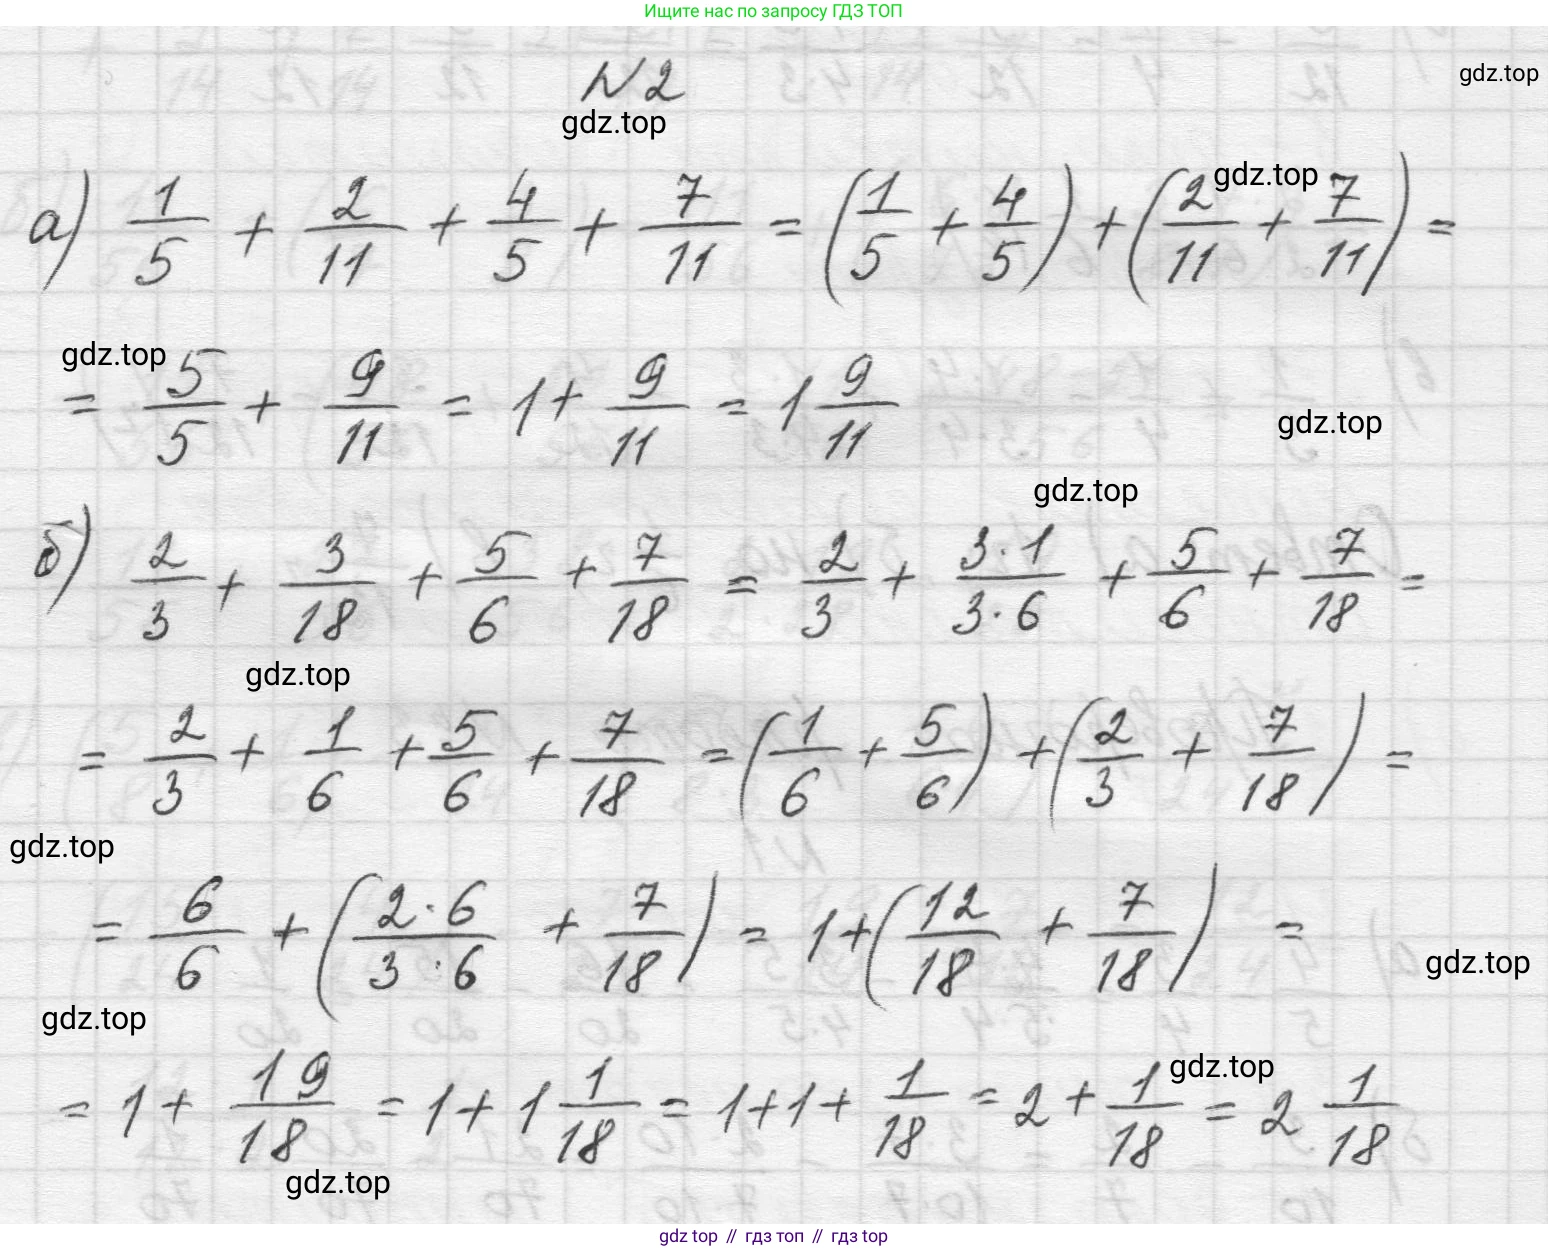 Ищите нас по запросу ГДЗ ТОП
gdz.top
N 2
gdz.top
gdz.top
а) 1/5 + 2/11 + 4/5 + 7/11 = (1/5 + 4/5) + (2/11 + 7/11) =
gdz.top
= 5/5 + 9/11 = 1 + 9/11 = 1 9/11
gdz.top
gdz.top
б) 2/3 + 3/18 + 5/6 + 7/18 = 2/3 + 3·1/3·6 + 5/6 + 7/18 =
gdz.top
= 2/3 + 1/6 + 5/6 + 7/18 = (1/6 + 5/6) + (2/3 + 7/18) =
gdz.top
= 6/6 + (2·6/3·6 + 7/18) = 1 + (12/18 + 7/18) =
gdz.top
gdz.top
= 1 + 19/18 = 1 + 1 1/18 = 1 + 1 + 1/18 = 2 + 1/18 = 2 1/18
gdz.top
gdz.top
gdz top // гдз топ // гдз top